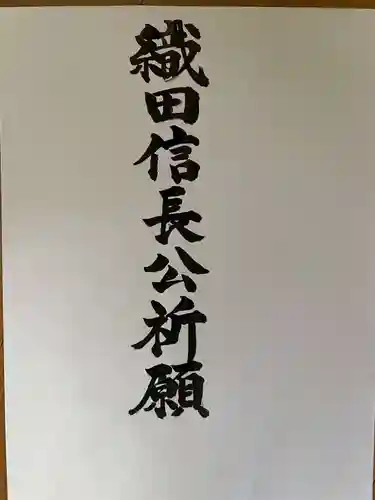 織田信長公祈願